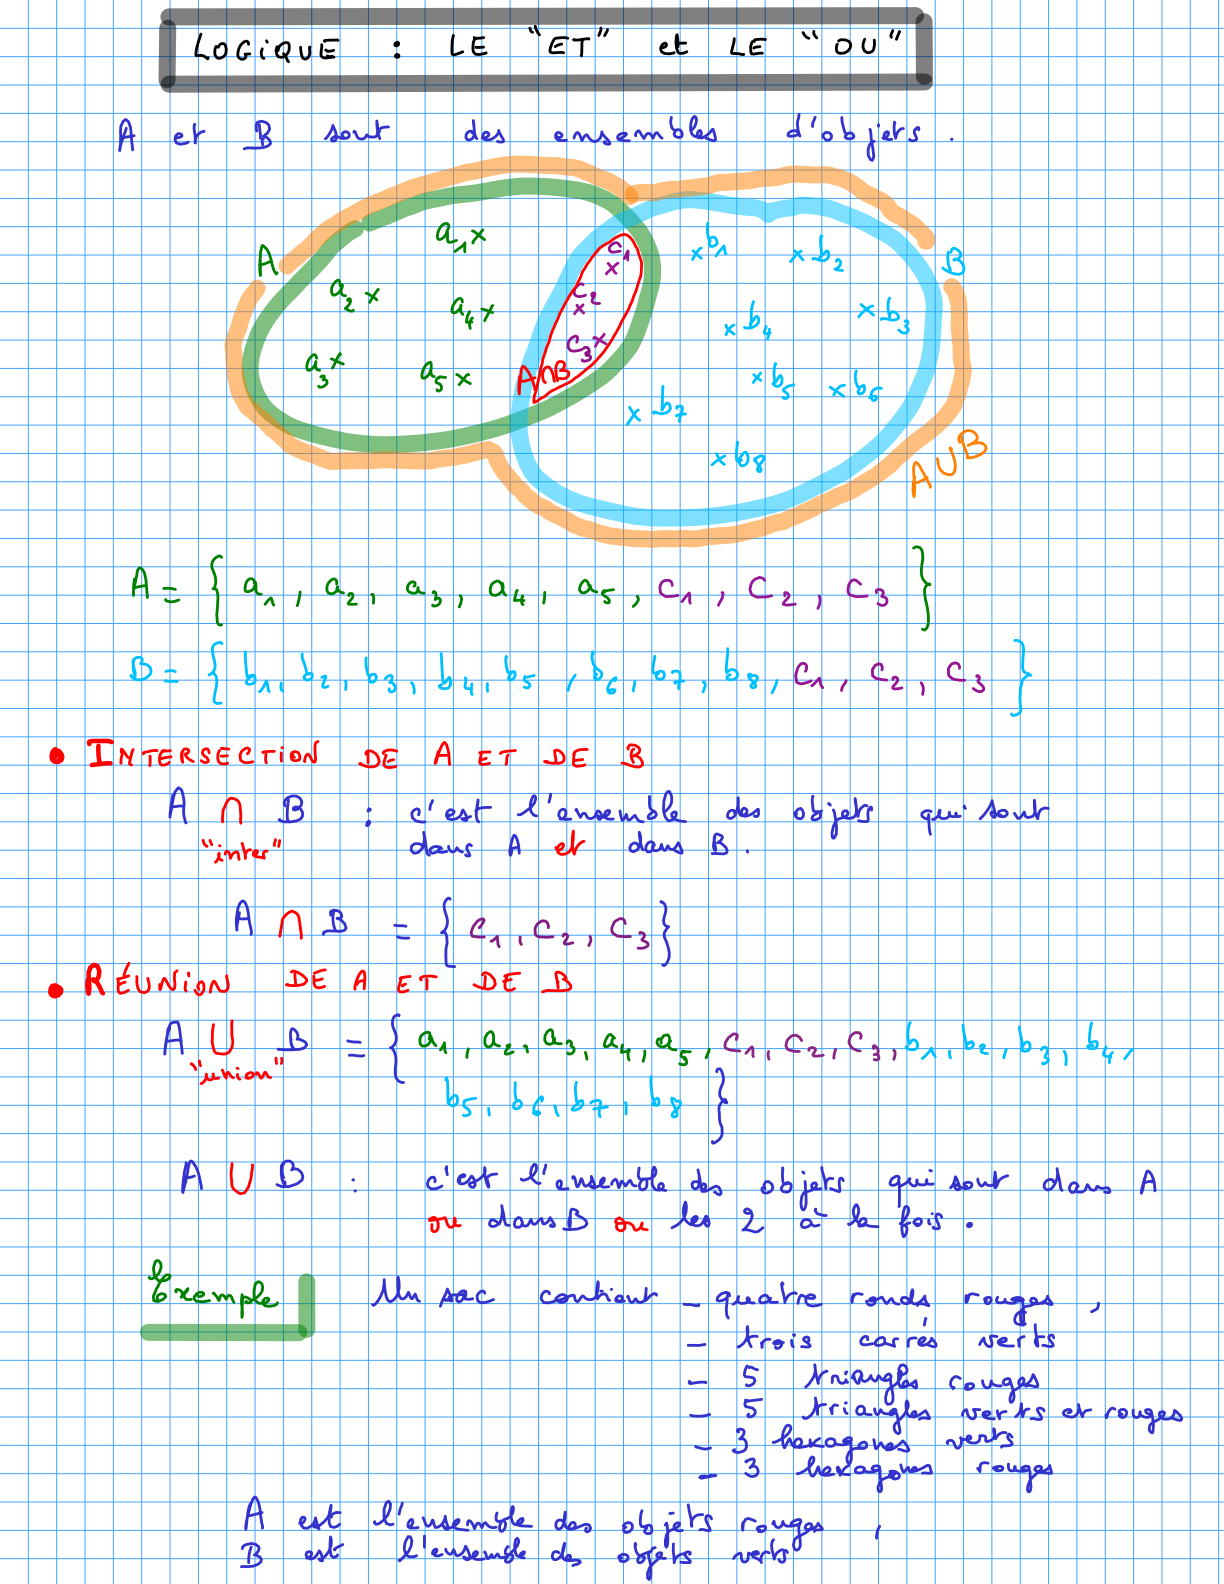 LOGIQUE : LE "ET" et LE "OU"
A et B sont des ensembles d'objets.
A
a₁ ×
a₂ ×
a₃ ×
a₄ ×
a₅ ×
c₁
×
c₂
×
c₃ ×
A∩B
× b₁
× b₂
B
× b₃
× b₄
× b₅
× b₆
× b₇
× b₈
A∪B
A = { a₁, a₂, a₃, a₄, a₅, c₁, c₂, c₃ }
B = { b₁, b₂, b₃, b₄, b₅, b₆, b₇, b₈, c₁, c₂, c₃ }
• INTERSECTION DE A ET DE B
A ∩ B : c'est l'ensemble des objets qui sont
"inter" dans A et dans B.
A ∩ B = { c₁, c₂, c₃ }
• RÉUNION DE A ET DE B
A ∪ B = { a₁, a₂, a₃, a₄, a₅, c₁, c₂, c₃, b₁, b₂, b₃, b₄,
"union"
b₅, b₆, b₇, b₈ }
A ∪ B : c'est l'ensemble des objets qui sont dans A
ou dans B ou les 2 à la fois.
Exemple Un sac contient – quatre ronds rouges,
– trois carrés verts
– 5 triangles rouges
– 5 triangles verts et rouges
– 3 hexagones verts
– 3 hexagones rouges
A est l'ensemble des objets rouges,
B est l'ensemble des objets verts